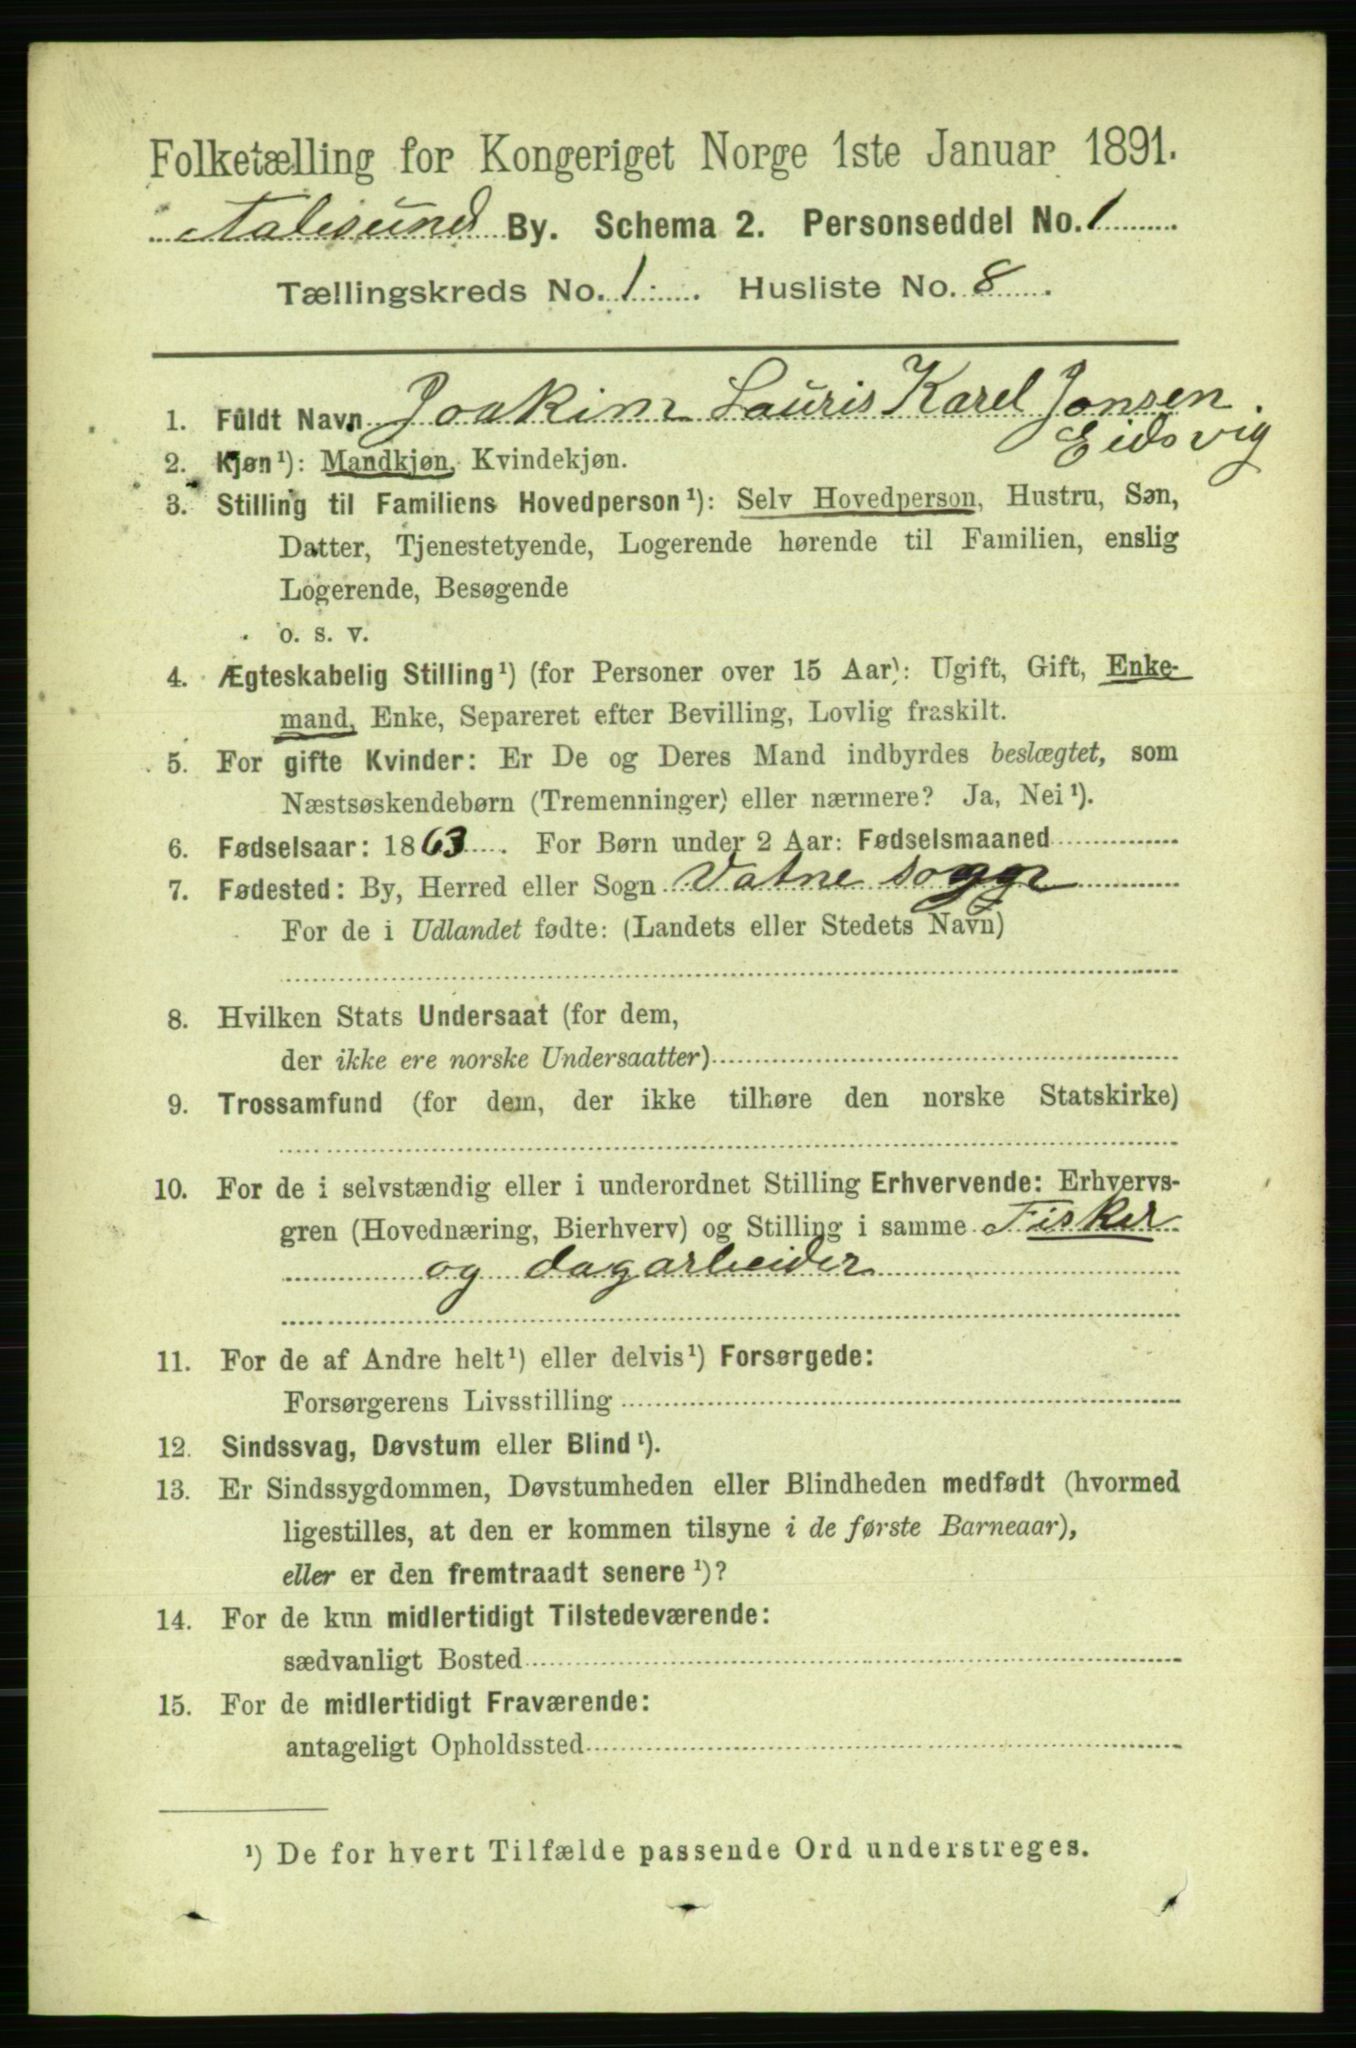 Folketælling for Kongeriget Norge 1ste Januar 1891.
Aalesund By. Schema 2. Personseddel No. 1
Tællingskreds No. 1. Husliste No. 8.
1. Fuldt Navn Joakim Lauris Karel Jonsen
Eidsvig
2. Kjøn¹): Mandkjøn, Kvindekjøn.
3. Stilling til Familiens Hovedperson¹): Selv Hovedperson, Hustru, Søn,
Datter, Tjenestetyende, Logerende hørende til Familien, enslig
Logerende, Besøgende
o. s. v.
4. Ægteskabelig Stilling¹) (for Personer over 15 Aar): Ugift, Gift, Enke-
mand, Enke, Separeret efter Bevilling, Lovlig fraskilt.
5. For gifte Kvinder: Er De og Deres Mand indbyrdes beslægtet, som
Næstsøskendebørn (Tremenninger) eller nærmere? Ja, Nei¹).
6. Fødselsaar: 1863. For Børn under 2 Aar: Fødselsmaaned
7. Fødested: By, Herred eller Sogn Vatne sogn
For de i Udlandet fødte: (Landets eller Stedets Navn)
8. Hvilken Stats Undersaat (for dem,
der ikke ere norske Undersaatter)
9. Trossamfund (for dem, der ikke tilhøre den norske Statskirke)
10. For de i selvstændig eller i underordnet Stilling Erhvervende: Erhvervs-
gren (Hovednæring, Bierhverv) og Stilling i samme Fisker
og dagarbeider
11. For de af Andre helt¹) eller delvis¹) Forsørgede:
Forsørgerens Livsstilling
12. Sindssvag, Døvstum eller Blind¹).
13. Er Sindssygdommen, Døvstumheden eller Blindheden medfødt (hvormed
ligestilles, at den er kommen tilsyne i de første Barneaar),
eller er den fremtraadt senere¹)?
14. For de kun midlertidigt Tilstedeværende:
sædvanligt Bosted
15. For de midlertidigt Fraværende:
antageligt Opholdssted
¹) De for hvert Tilfælde passende Ord understreges.